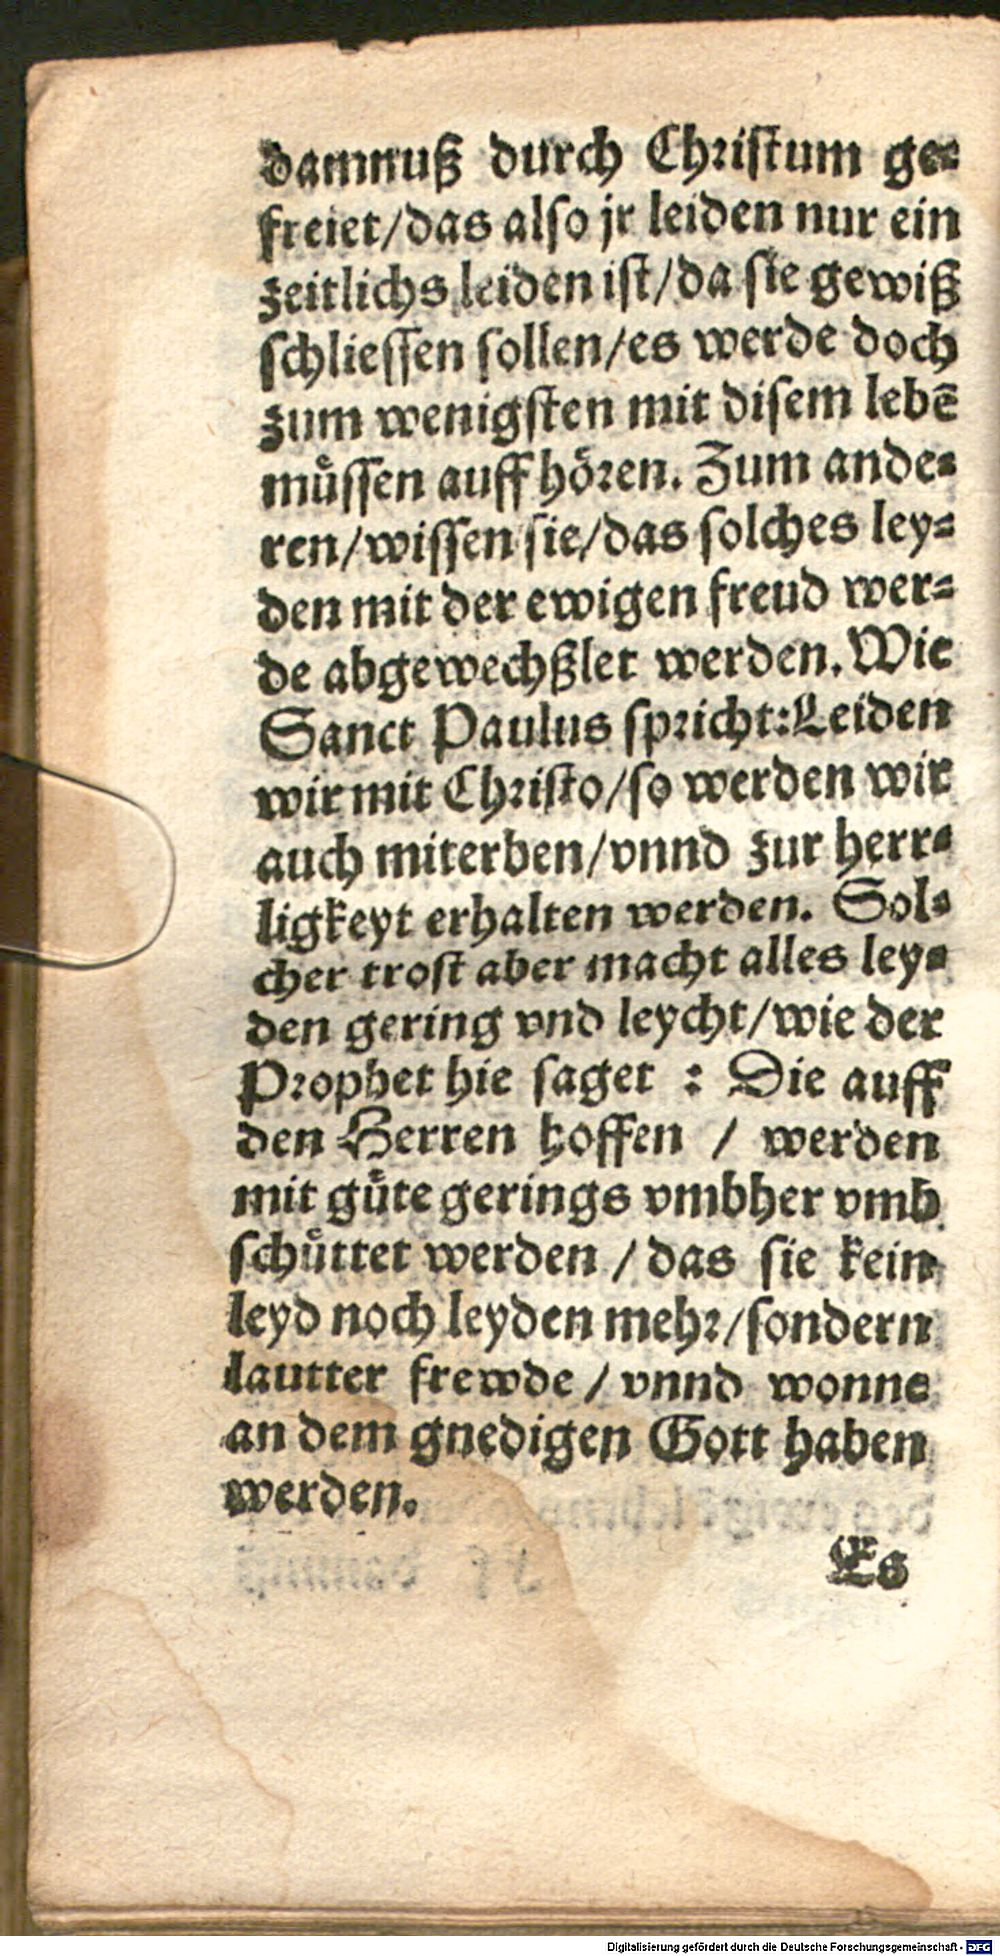 damnuß durch Christum ge⸗
freiet/das also jr leiden nur ein
zeitlichs leiden ist/da sie gewiß
schliessen sollen/es werde doch
zum wenigsten mit disem lebẽ
muͤssen auff hoͤren. Zum ande⸗
ren/wissen sie/das solches ley⸗
den mit der ewigen freud wer⸗
de abgewechßlet werden. Wie
Sanct Paulus spricht: Leiden
wir mit Christo/so werden wir
auch miterben/vnnd zur herr⸗
ligkeyt erhalten werden. Sol⸗
cher trost aber macht alles ley⸗
den gering vnd leycht/wie der
Prophet hie saget : Die auff
den Herren hoffen / werden
mit guͤte gerings vmbher vmb
schuͤttet werden / das sie kein
leyd noch leyden mehr/sondern
lautter frewde / vnnd wonne
an dem gnedigen Gott haben
werden.
Es
Digitalisierung gefördert durch die Deutsche Forschungsgemeinschaft - DFG